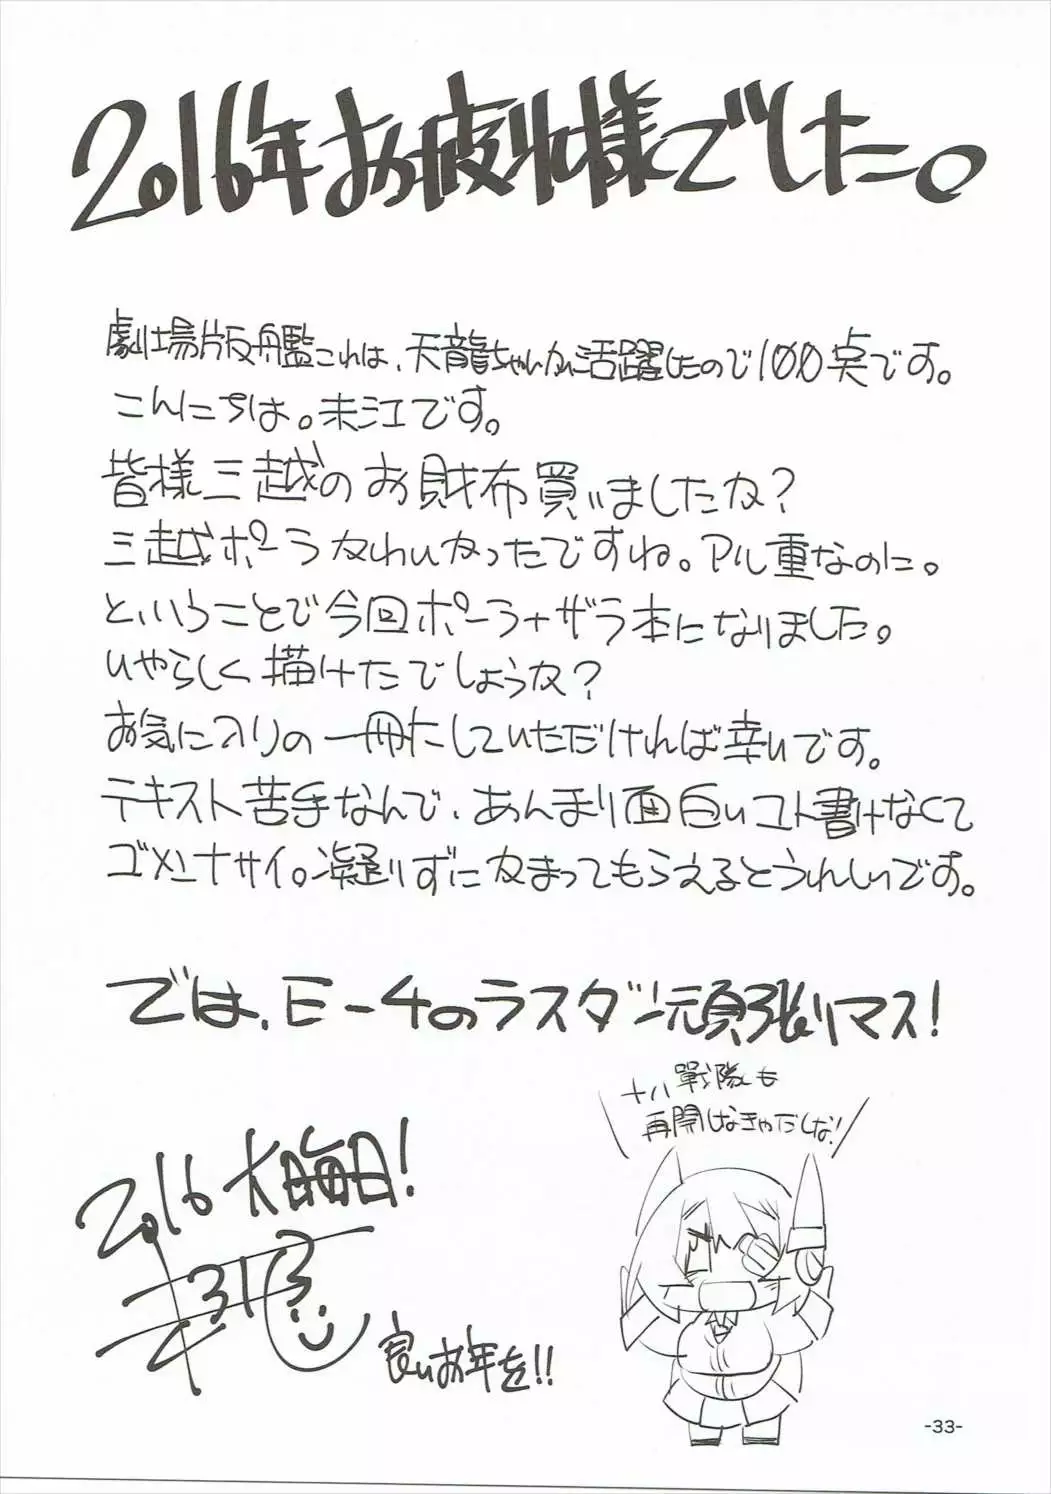 2016年お疲れ様でした。
劇場版艦これは、天龍ちゃんが活躍したので100点です。
こんにちは。末江です。
皆様三越のお財布買いましたか?
三越ポーラかわいかったですね。アル重なのに。
ということで今回ポーラ+ザラ本になりました。
いやらしく描けたでしょうか?
お気に入りの一冊にしていただければ幸いです。
テキスト苦手なんで、あんまり面白いコト書けなくて
ゴメンナサイ。凝りずにかまってもらえるとうれしいです。
では、E-4のラスダン頑張りマス!
十八戦隊も
再開しなきゃだしな!
2016 大晦日!
良いお年を!!
-33-